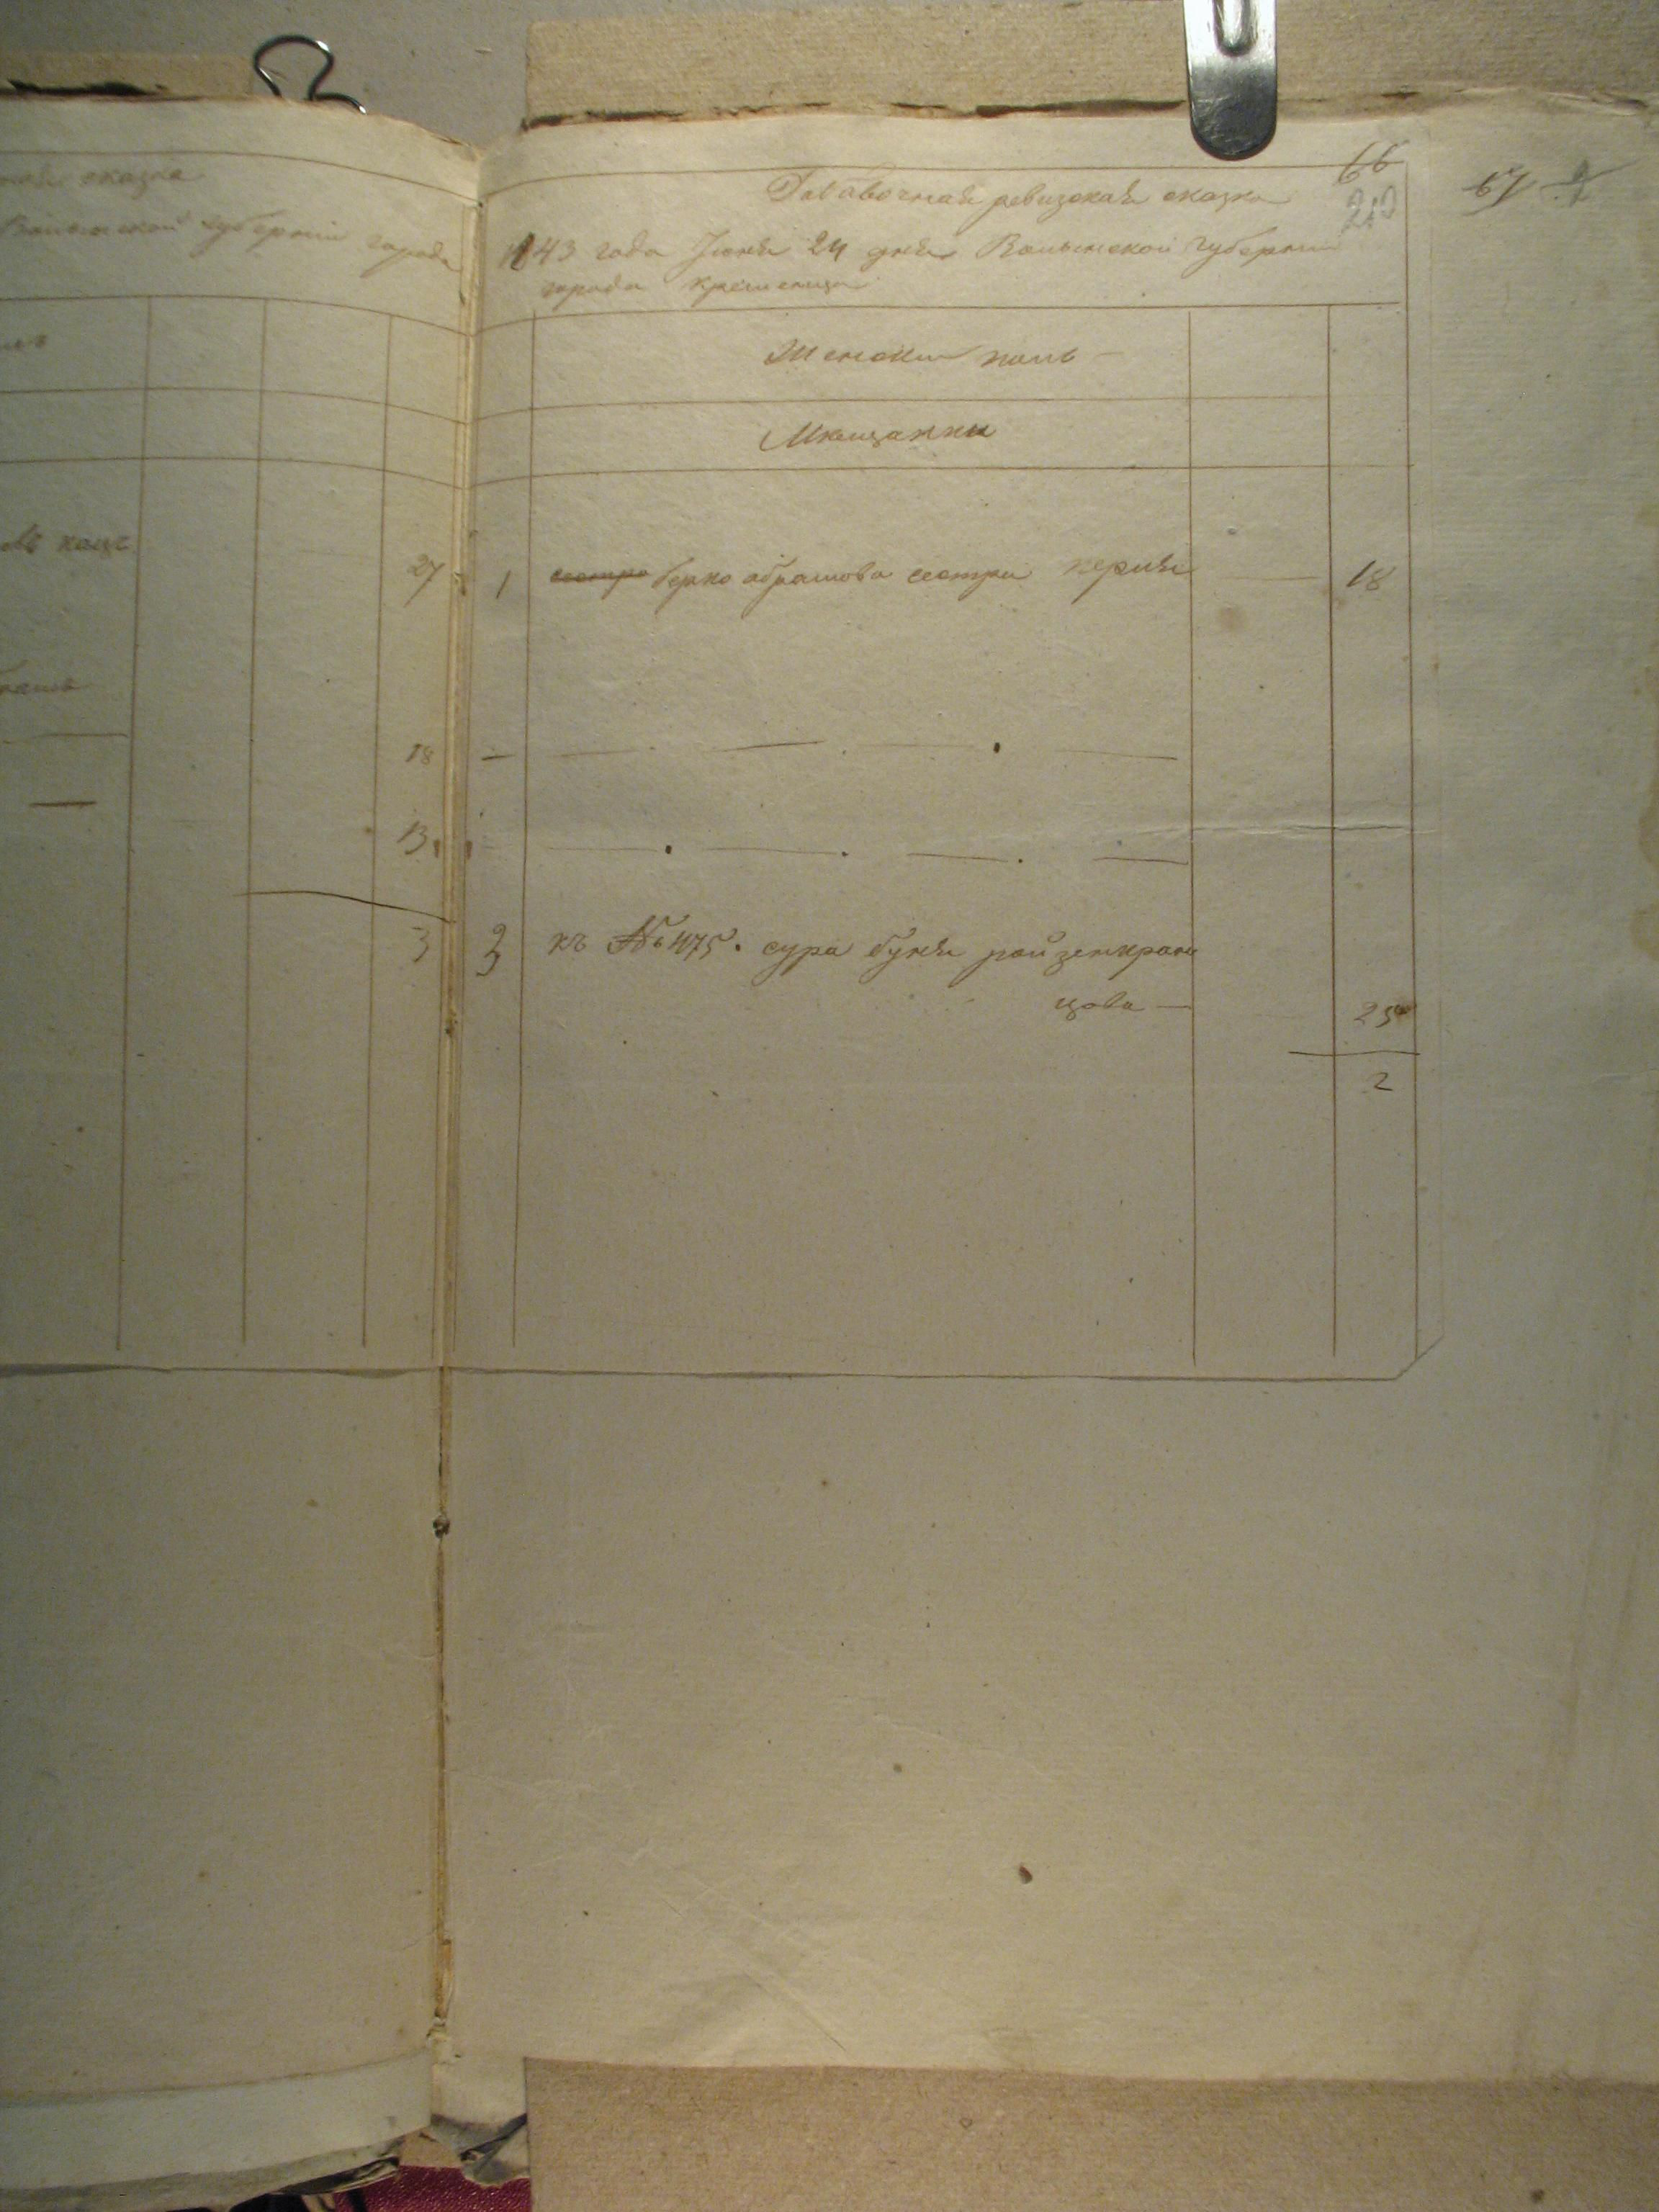 сказка
Волынской губерніи города
27
18
13
3
66
67
Добавочная ревизская сказка
1843 года Іюня 24 дня Волынской губерніи
города Кременца
Женски полъ —
Мещанки
1 сестра берко абрамова сестра перля — 18
3 къ № 475. сура буня ройзенкран
цова — 25
2